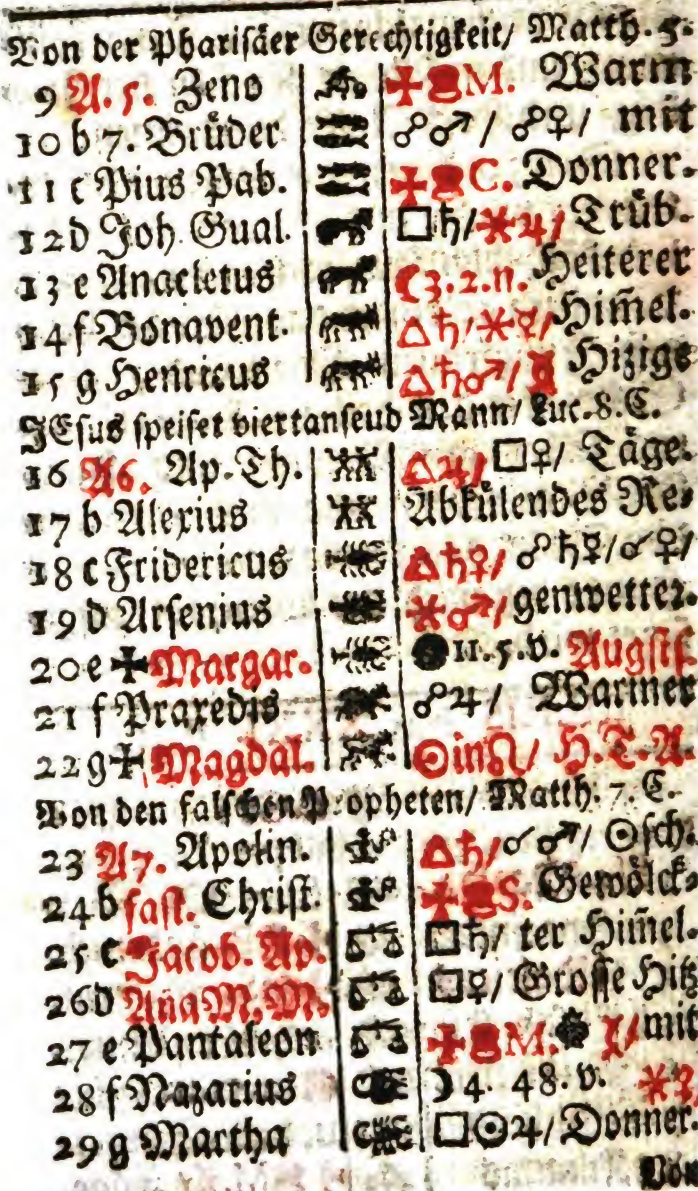 Von der Pharisäer Gerechtigkeit/ Matth. 5.
9 A. 5. Zeno ✠ M. Warm
10 b 7. Brüder ☍♂/ ☍♀/ mit
11 c Pius Pab. ✠ C. Donner-
12 d Joh. Gual. □♄/⚹♃/ Trüb.
13 e Anacletus ☾3.2.n. Heiterer
14 f Bonavent. △♄/⚹☿/ Him̃el.
15 g Henricus △♄♂/ Hizige
JEsus speiset viertausend Mann/ Luc. 8. C.
16 A6. Ap. Th. △♃/ □♀/ Täge.
17 b Alexius Abkülendes Re-
18 c Fridericus △♄♀/ ☍♄☿/☌♀/
19 d Arsenius ⚹♂/ genwetter.
20 e ✠ Margar. ● 11.5.v. Augsts.
21 f Praxedis ☍♃/ Warmer
22 g ✠ Magdal. ☉in♌/ H.T.A.
Von den falschen Propheten/ Matth. 7. C.
23 A7. Apolin. △♄/☌♂/ ☉sch.
24 b fast. Christ. ✠ S. Gewölck-
25 c Jacob. Ap. □♄/ ter Him̃el.
26 d Añа M. M. □☿/ Grosse Hitz
27 e Pantaleon ✠ M. mit
28 f Nazarius ☽ 4. 48. v.
29 g Martha □☉♃/ Donner.
Von